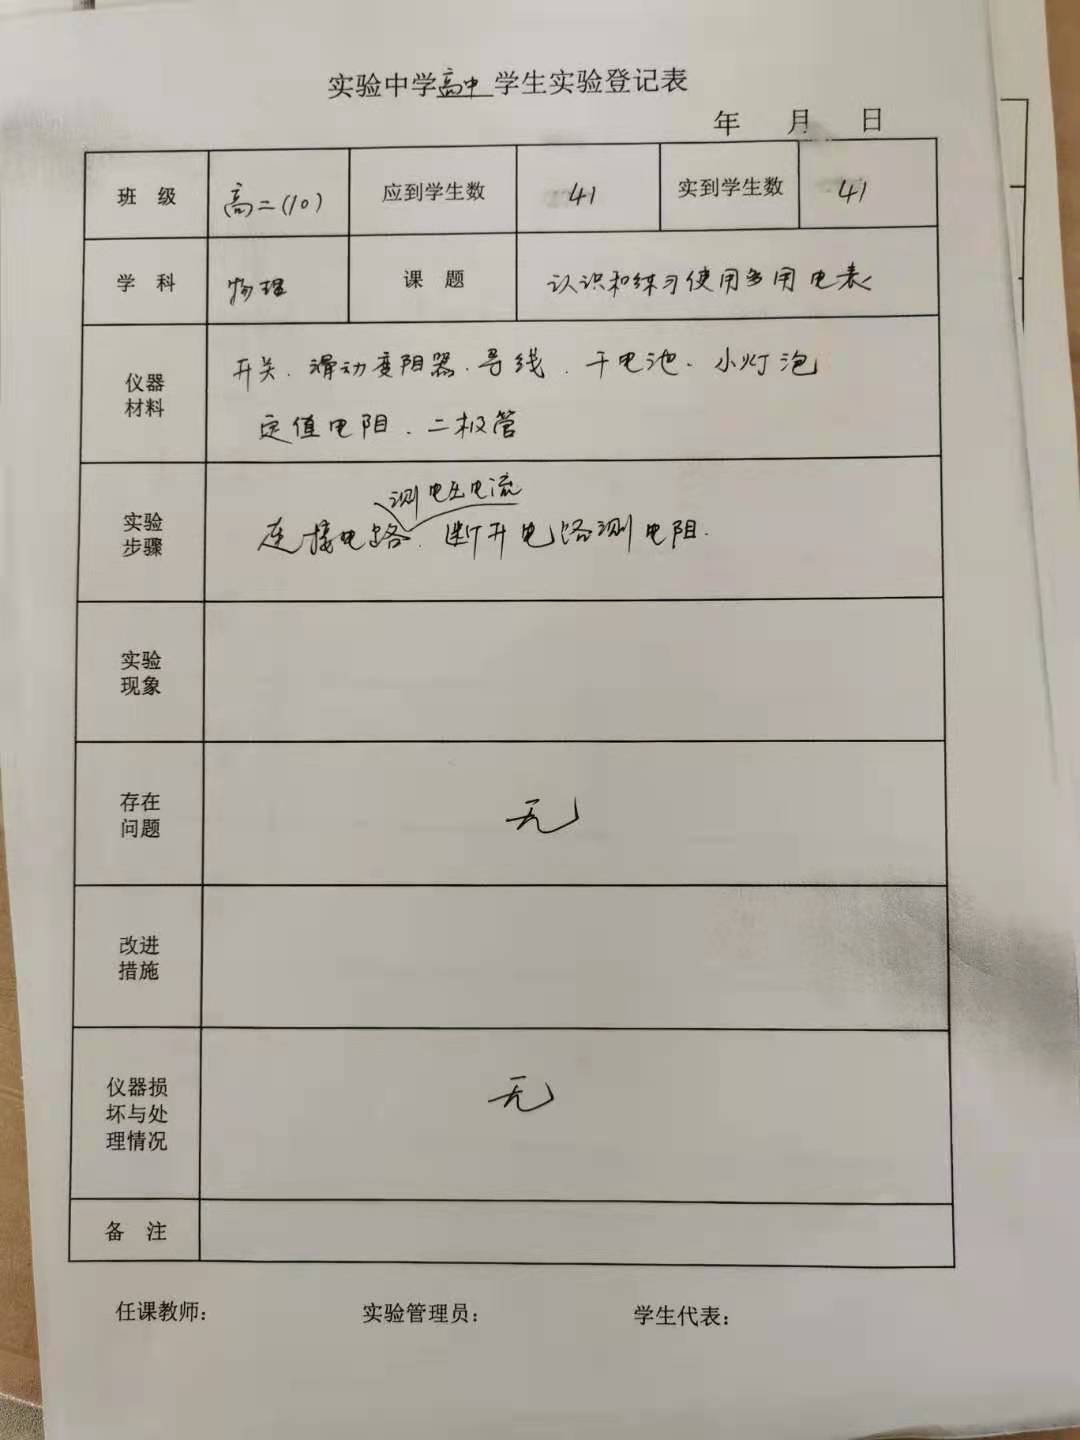 实验中学高中学生实验登记表
年 月 日
班 级 高二(10) 应到学生数 41 实到学生数 41
学 科 物理 课 题 认识和练习使用多用电表
仪器材料 开关、滑动变阻器、导线、干电池、小灯泡
定值电阻、二极管
测电压电流
实验步骤 连接电路、断开电路测电阻.
实验现象
存在问题 无
改进措施
仪器损坏与处理情况 无
备 注
任课教师: 实验管理员: 学生代表: